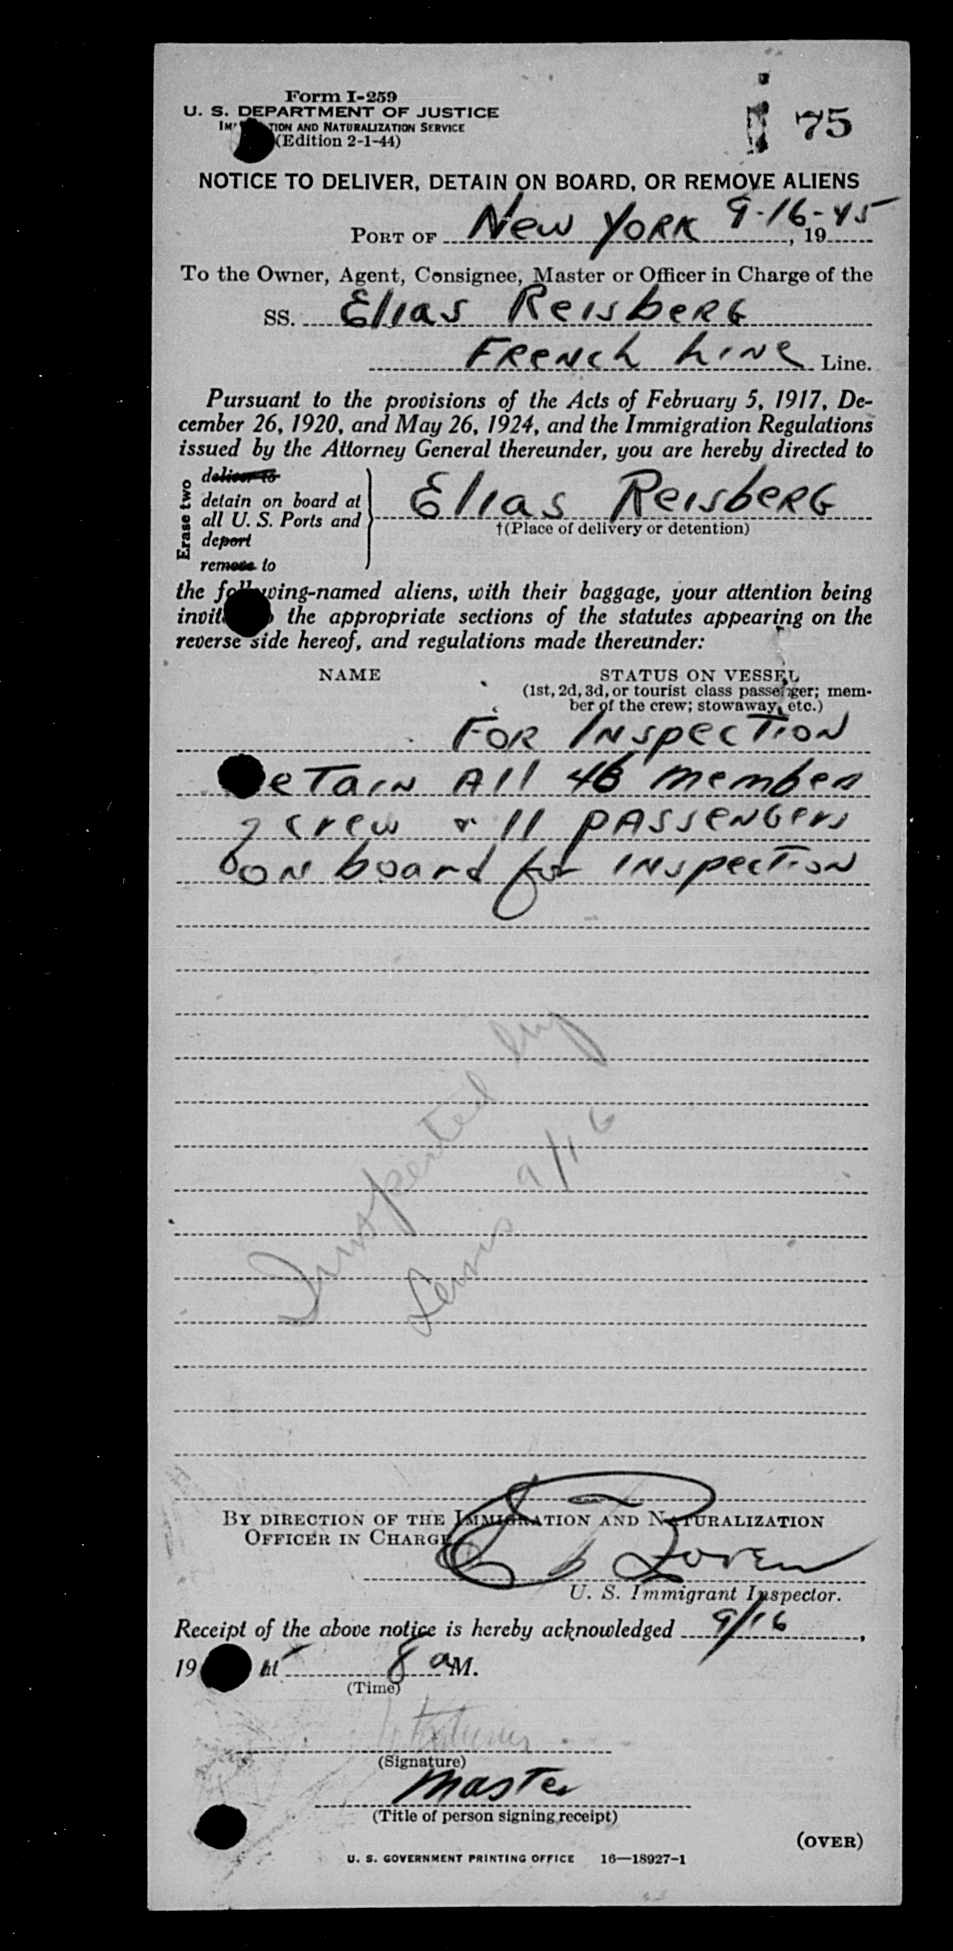 Form I-259
U. S. DEPARTMENT OF JUSTICE
75
IMMIGRATION AND NATURALIZATION SERVICE
(Edition 2-1-44)
NOTICE TO DELIVER, DETAIN ON BOARD, OR REMOVE ALIENS
PORT OF New York 9-16-45, 19
To the Owner, Agent, Consignee, Master or Officer in Charge of the
SS. Elias Reisberg
French Line Line.
Pursuant to the provisions of the Acts of February 5, 1917, De-
cember 26, 1920, and May 26, 1924, and the Immigration Regulations
issued by the Attorney General thereunder, you are hereby directed to
Erase two
deliver to
detain on board at
all U. S. Ports and
deport
remove to
Elias Reisberg
†(Place of delivery or detention)
the following-named aliens, with their baggage, your attention being
invited to the appropriate sections of the statutes appearing on the
reverse side hereof, and regulations made thereunder:
NAME STATUS ON VESSEL
(1st, 2d, 3d, or tourist class passenger; mem-
ber of the crew; stowaway, etc.)
For Inspection
Detain All 46 members
of crew & 11 passengers
on board for inspection
Inspected by
9/16
BY DIRECTION OF THE IMMIGRATION AND NATURALIZATION
OFFICER IN CHARGE
U. S. Immigrant Inspector.
Receipt of the above notice is hereby acknowledged 9/16,
19 at 8 a M.
(Time)
(Signature)
Master
(Title of person signing receipt)
(OVER)
U. S. GOVERNMENT PRINTING OFFICE 16—18927-1